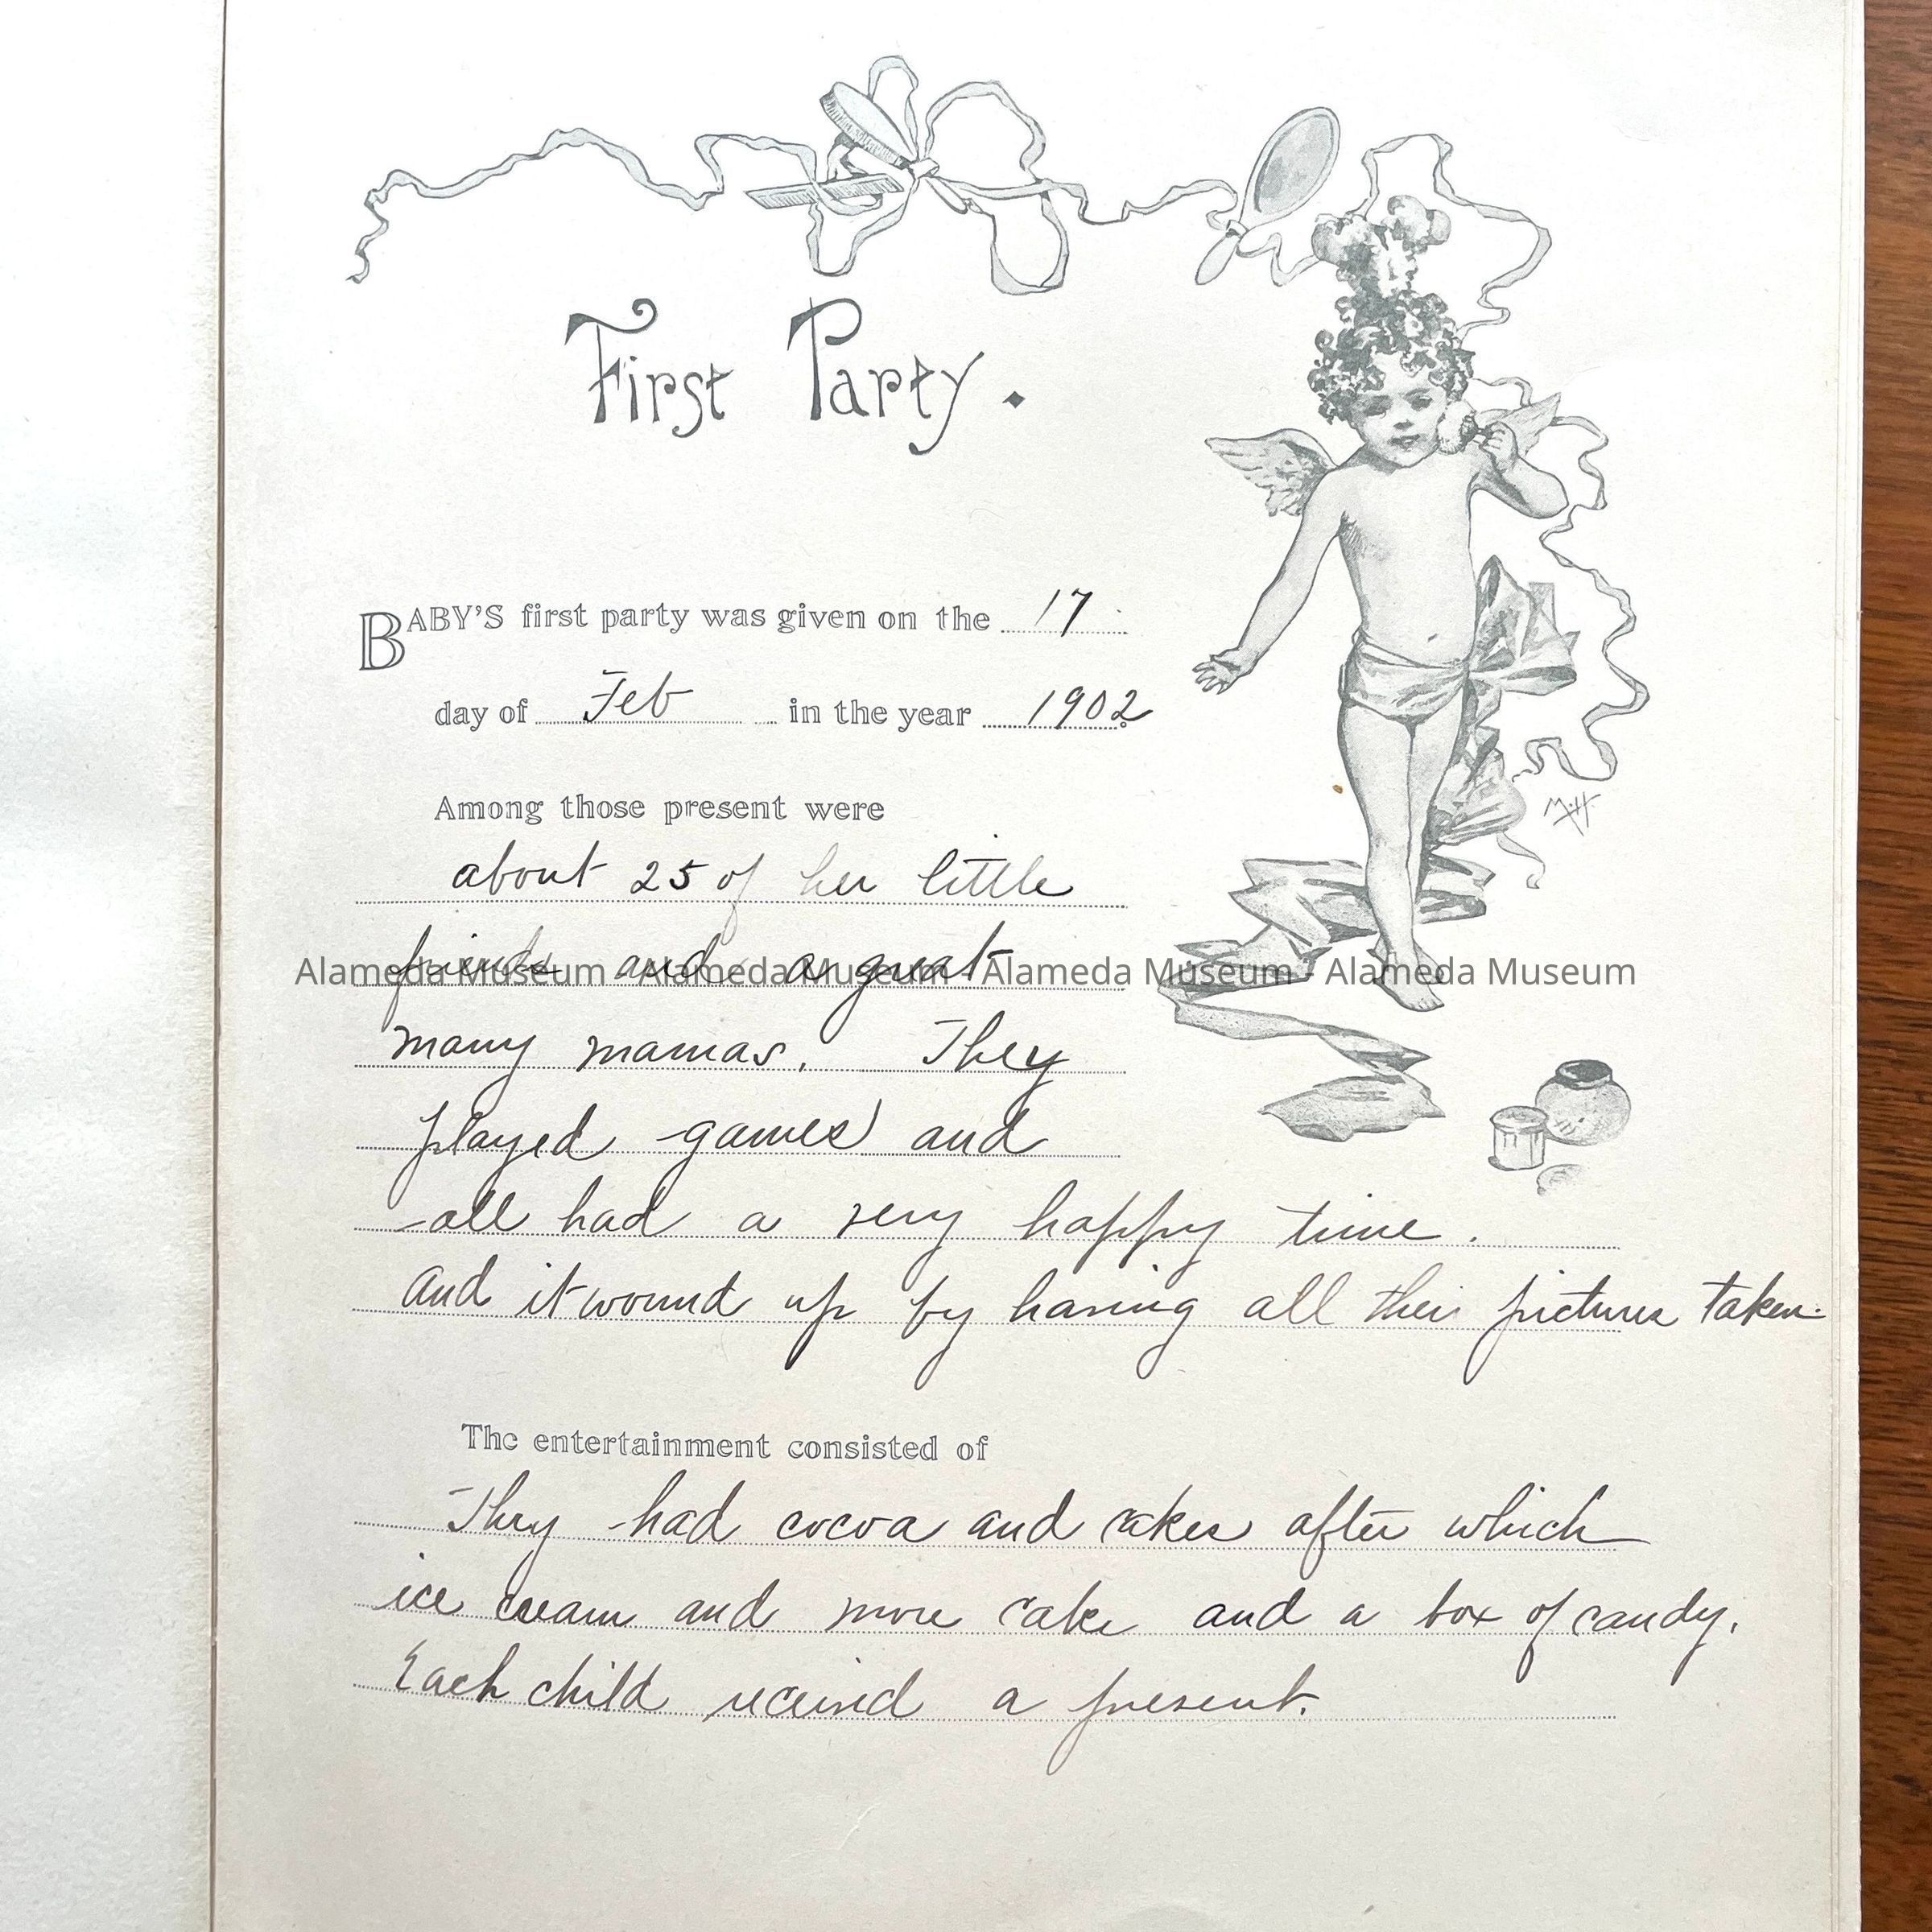 First Party.
BABY'S first party was given on the 17
day of Feb in the year 1902
M.H
Among those present were
about 25 of her little
friends and a great
Alameda Museum - Alameda Museum - Alameda Museum - Alameda Museum
many mamas. They
played games and
all had a very happy time.
And it wound up by having all their pictures taken.
The entertainment consisted of
They had cocoa and cakes after which
ice cream and more cake and a box of candy.
Each child received a present.